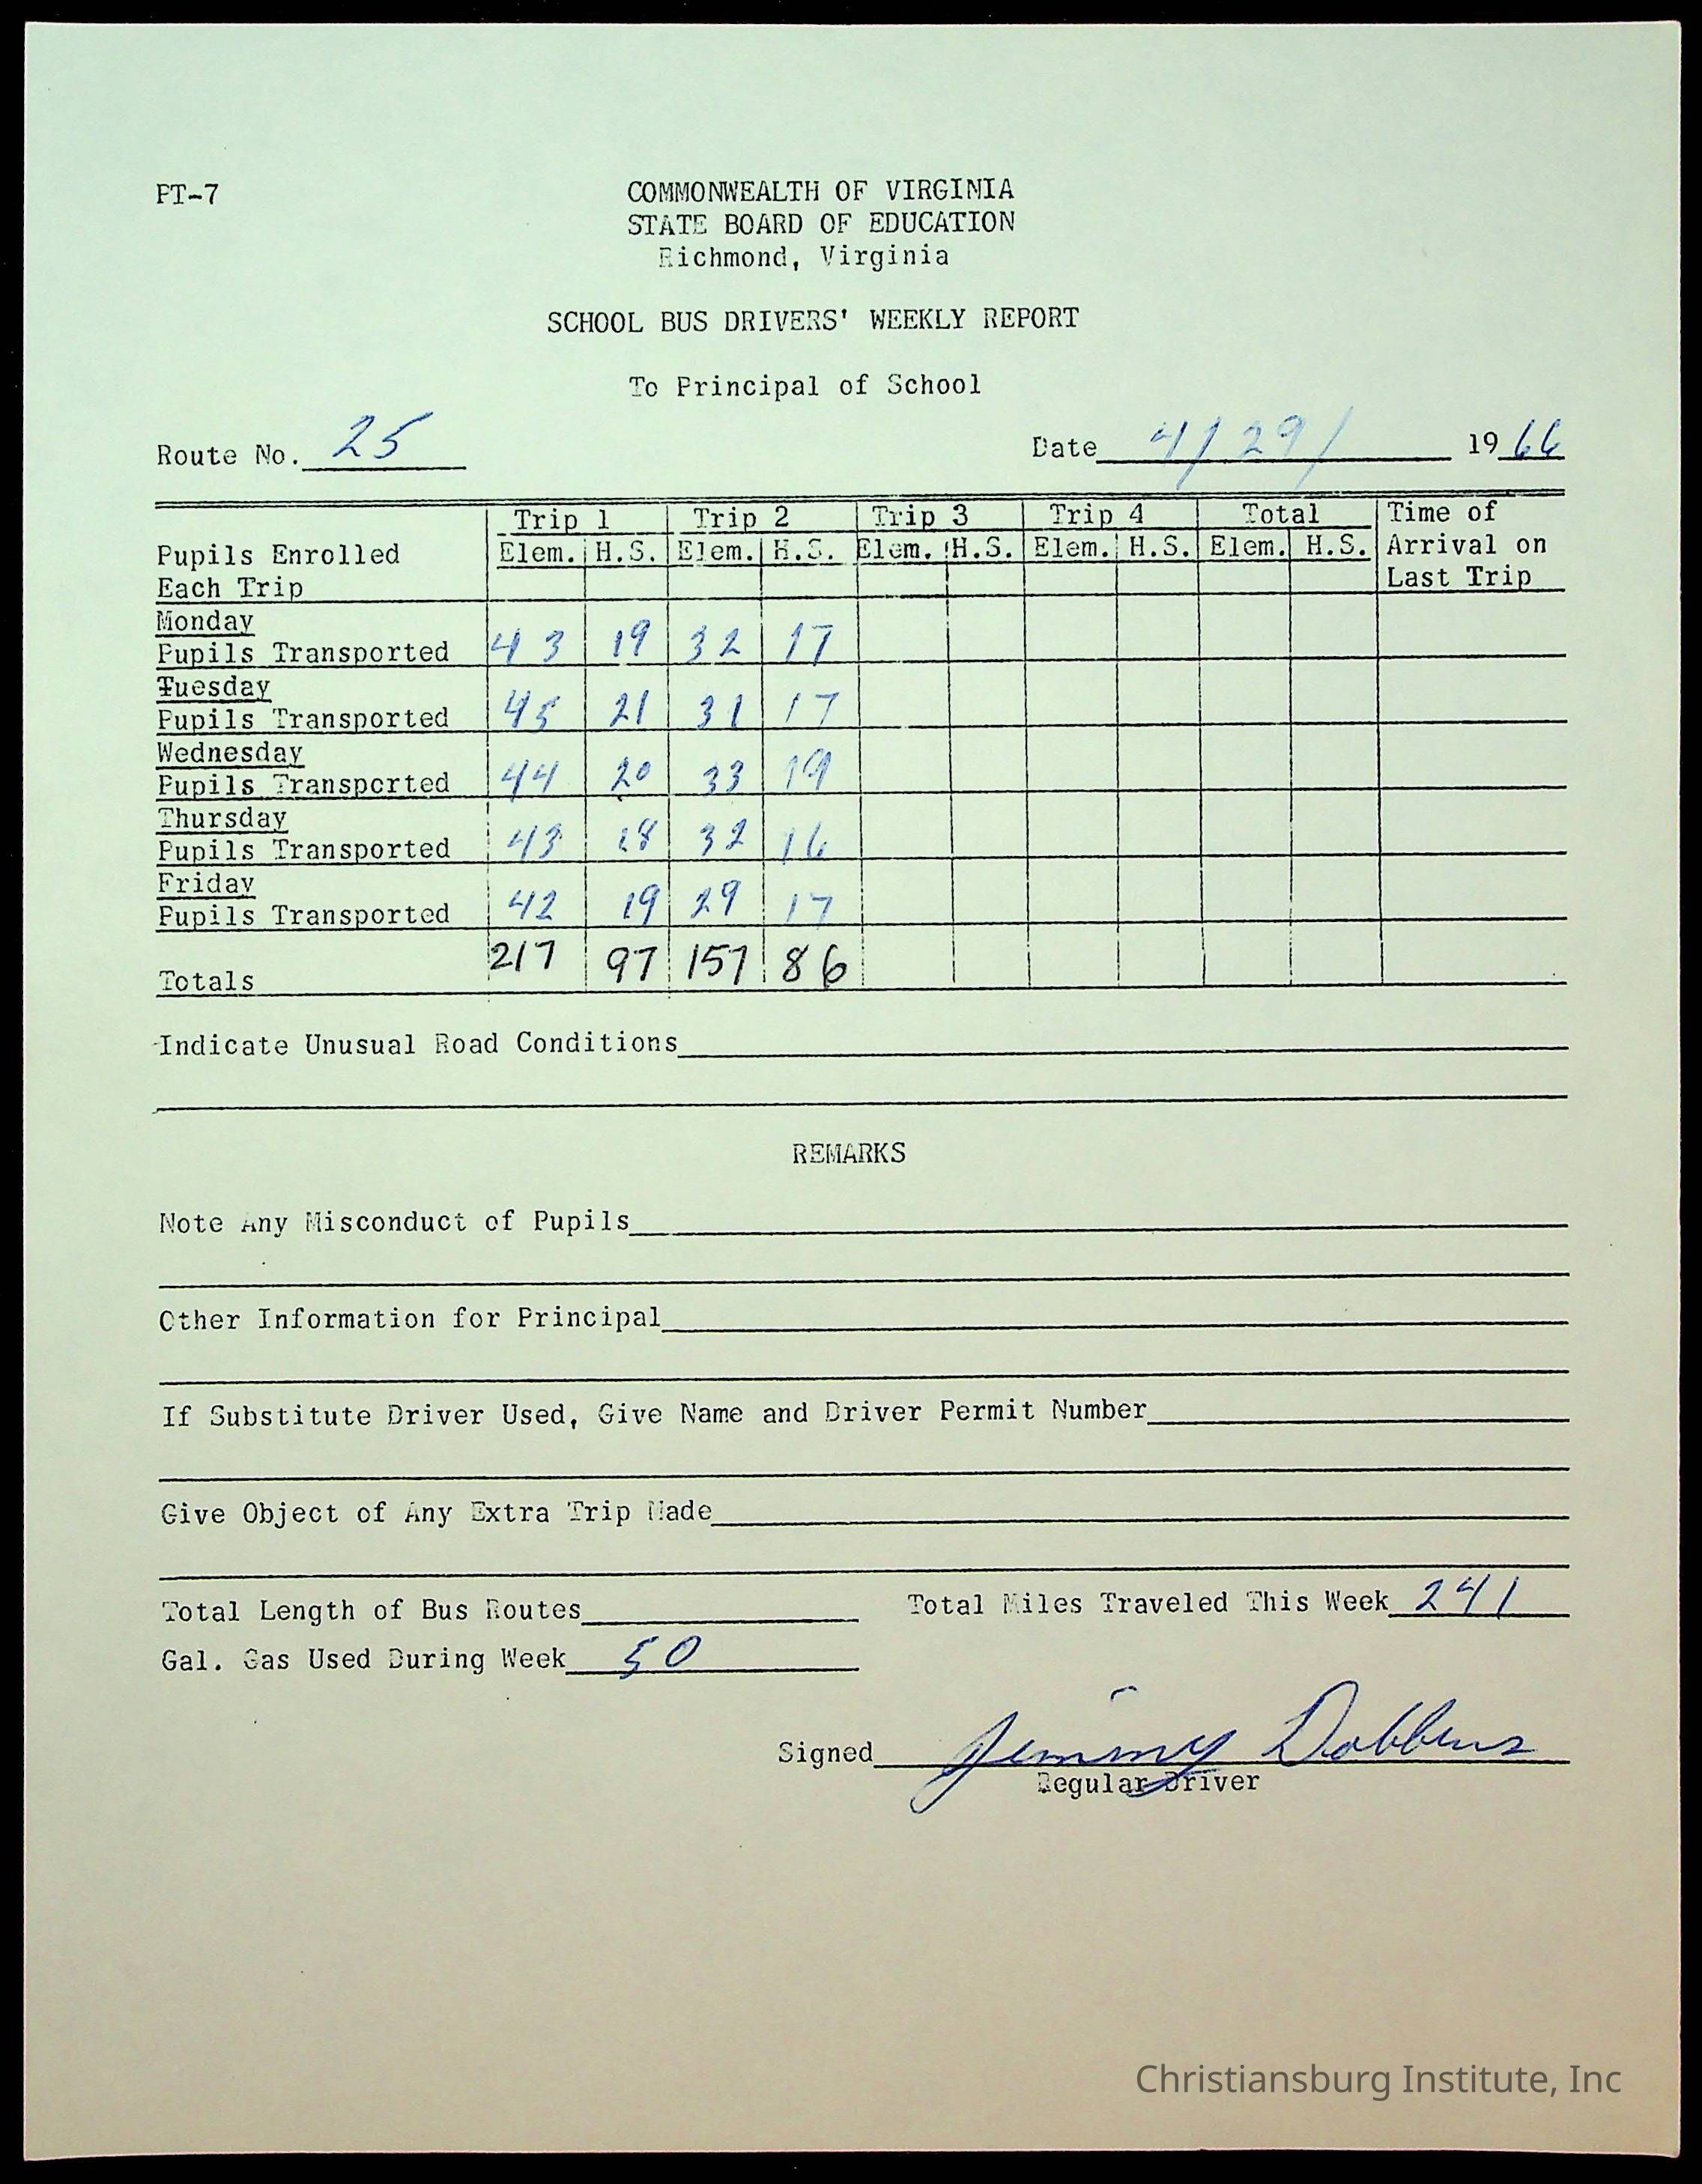 PT-7
COMMONWEALTH OF VIRGINIA
STATE BOARD OF EDUCATION
Richmond, Virginia
SCHOOL BUS DRIVERS' WEEKLY REPORT
To Principal of School
Route No. 25 Date 4/29/ 1966
Trip 1 Trip 2 Trip 3 Trip 4 Total Time of
Pupils Enrolled Elem. H.S. Elem. H.S. Elem. H.S. Elem. H.S. Elem. H.S. Arrival on
Each Trip Last Trip
Monday
Pupils Transported 43 19 32 17
Tuesday
Pupils Transported 45 21 31 17
Wednesday
Pupils Transported 44 20 33 19
Thursday
Pupils Transported 43 18 32 16
Friday
Pupils Transported 42 19 29 17
Totals 217 97 157 86
Indicate Unusual Road Conditions
REMARKS
Note Any Misconduct of Pupils
Other Information for Principal
If Substitute Driver Used, Give Name and Driver Permit Number
Give Object of Any Extra Trip Made
Total Length of Bus Routes Total Miles Traveled This Week 241
Gal. Gas Used During Week 50
Signed Jimmy Dobbins
Regular Driver
Christiansburg Institute, Inc